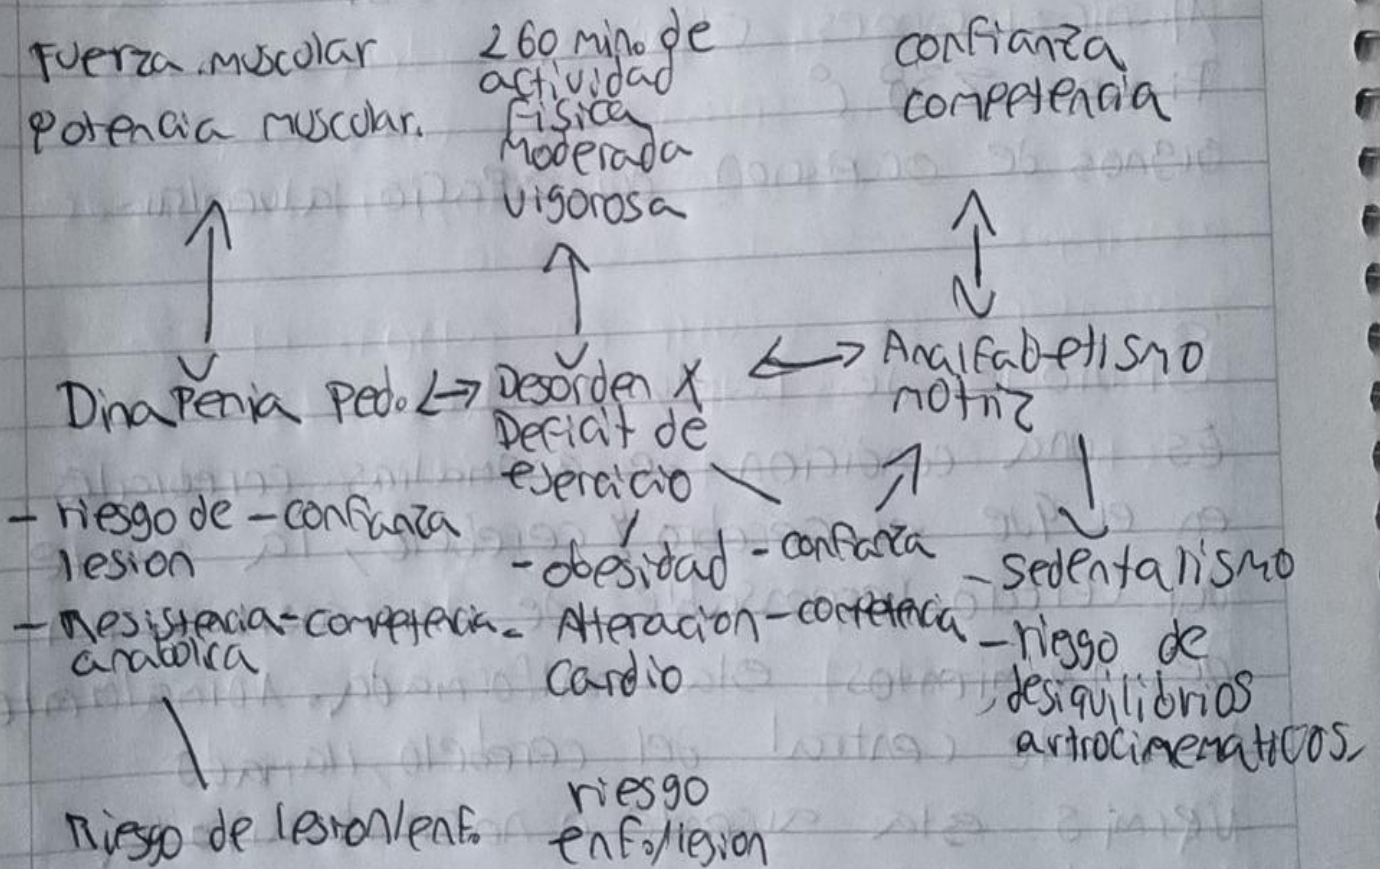 Fuerza muscolar
Potencia muscolar.
260 min. de
actividad
Física
Moderada
vigorosa
confianza
competencia
Dinapenia ped. <-> Desorden x
Deficit de
ejercicio
<-> Analfabetismo
motriz
- riesgo de - confianza
lesion
- Resistencia - competencia
anabolica
- obesidad - confianza
- Alteracion - competencia
cardio
- sedentalismo
- riesgo de
desiquilibrios
artrocinematicos.
Riesgo de lesion/enf.
riesgo
enf./lesion